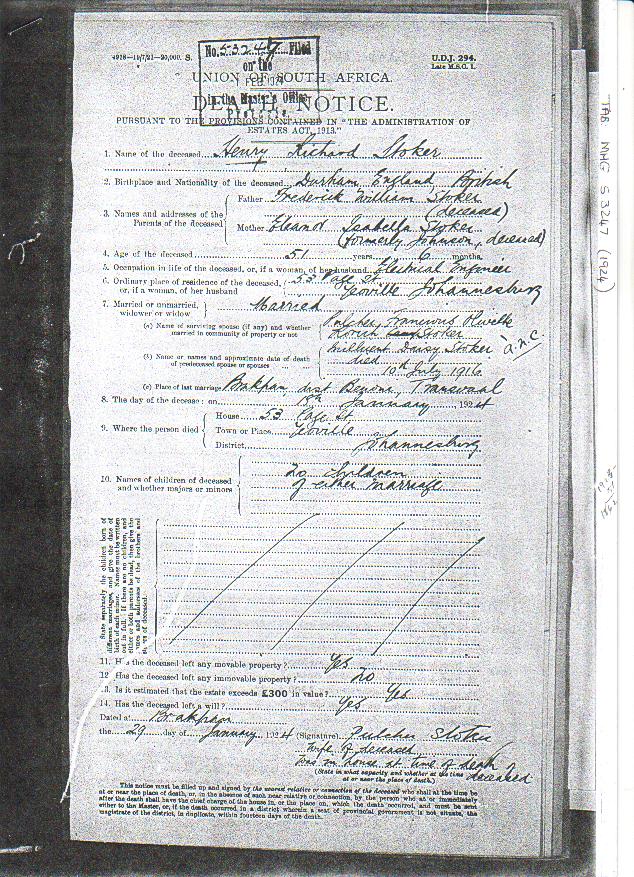 4928—19/7/21—20,000. S.
No. 53247 Filed
on the
FEB 1924
in the Master's Office
Pretoria
U.D.J. 294.
Late M.S.C. 1.
UNION OF SOUTH AFRICA.
DEATH NOTICE.
PURSUANT TO THE PROVISIONS CONTAINED IN "THE ADMINISTRATION OF
ESTATES ACT, 1913."
1. Name of the deceased Henry Richard Stoker
2. Birthplace and Nationality of the deceased Durham England, British
3. Names and addresses of the Parents of the deceased
Father Frederick William Stoker
(deceased)
Mother Isabella Stoker
(formerly Johnson, deceased)
4. Age of the deceased 51 years 6 months
5. Occupation in life of the deceased, or, if a woman, of her husband Electrical Engineer
6. Ordinary place of residence of the deceased, or, if a woman, of her husband
53 Page St
Yeoville Johannesburg
7. Married or unmarried, widower or widow Married
(a) Name of surviving spouse (if any) and whether married in community of property or not
Pulcher
Stoker a.n.c
(b) Name or names and approximate date of death of predeceased spouse or spouses
Millicent Daisy Stoker
died
10th July 1916
(c) Place of last marriage Brakpan, dist Benoni, Transvaal
8. The day of the decease: on 18th January 1924
9. Where the person died
House 53 Page St
Town or Place Yeoville
District Johannesburg
10. Names of children of deceased and whether majors or minors
No children
of either marriage
State separately the children born of
different marriages, and give the date of
birth of each minor. Names must be written
out in full. If there are no children, and
either or both parents be dead, then give the
names and addresses of the brothers and
sisters of deceased.
11. Has the deceased left any movable property? Yes
12. Has the deceased left any immovable property? no
13. Is it estimated that the estate exceeds £300 in value? Yes
14. Has the deceased left a will? Yes
Dated at Brakpan
the 29 day of January 1924 (Signature) Pulcher Stoker
Wife of deceased
was in house at time of death
(State in what capacity and whether at the time
or near the place of death.)
deceased
This notice must be filled up and signed by the nearest relative or connection of the deceased who shall at the time be
at or near the place of death, or, in the absence of such near relative or connection, by the person who at or immediately
after the death shall have the chief charge of the house in, or the place on, which the death occurred, and must be sent
either to the Master, or, if the death occurred in a district wherein a seat of provincial government is not situate, the
magistrate of the district, in duplicate, within fourteen days of the death.
TAB MHG 53247 (1924)